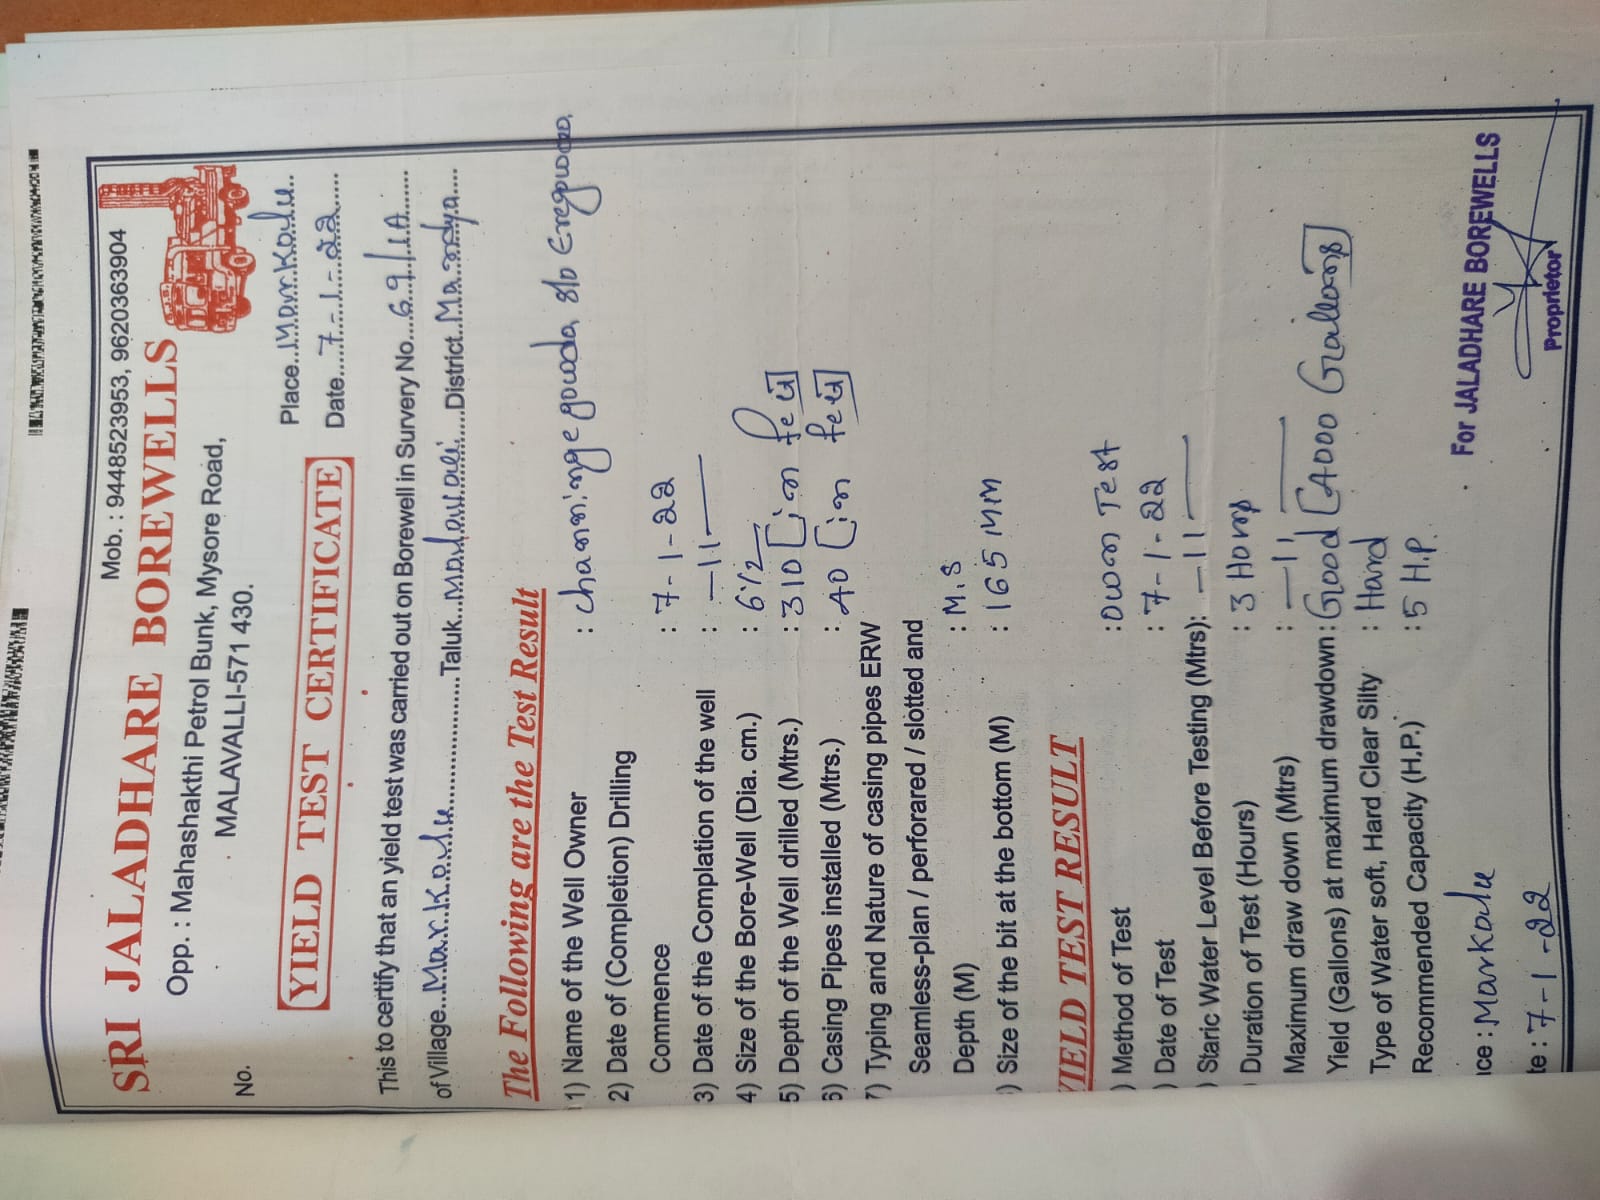 Mob. : 9448523953, 9620363904
SRI JALADHARE BOREWELLS
Opp. : Mahashakthi Petrol Bunk, Mysore Road,
MALAVALLI-571 430.
No.
Place...Markalu..
YIELD TEST CERTIFICATE
Date....7-1-22.....
This to certify that an yield test was carried out on Borewell in Survery No...69/1A.......
of Village...Markalu....................Taluk...Malavalli......District..Mandya....
The Following are the Test Result
1) Name of the Well Owner : channingegowda s/o Eregowda
2) Date of (Completion) Drilling
Commence : 7-1-22
3) Date of the Complation of the well : —11—
4) Size of the Bore-Well (Dia. cm.) : 6 1/2
5) Depth of the Well drilled (Mtrs.) : 310 [in feet]
6) Casing Pipes installed (Mtrs.) : 40 [in feet]
7) Typing and Nature of casing pipes ERW
Seamless-plan / perforared / slotted and
Depth (M) : M.S
) Size of the bit at the bottom (M) : 165 MM
YIELD TEST RESULT
) Method of Test : Own Test
) Date of Test : 7-1-22
) Staric Water Level Before Testing (Mtrs): —11—
Duration of Test (Hours) : 3 Hours
Maximum draw down (Mtrs) : —11—
Yield (Gallons) at maximum drawdown : Good [4000 Gallons]
Type of Water soft, Hard Clear Silty : Hard
Recommended Capacity (H.P.) : 5 H.P.
For JALADHARE BOREWELLS
ace : Markalu
te : 7-1-22
Proprietor